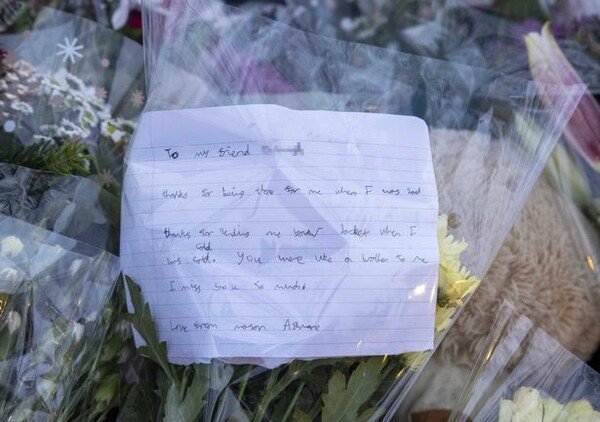 To my friend
thanks for being there for me when I was sad
thanks for lending me your Jacket when I
cold
was cold. You were like a brother to me
I miss you so much.
Love from mason